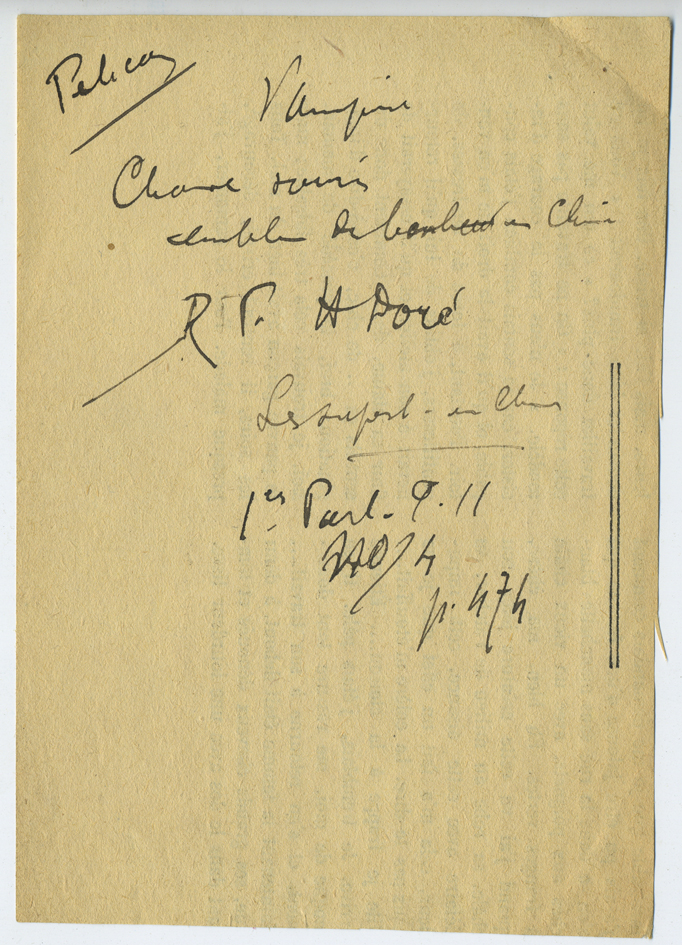 Pelican
Vampire
Chauve souris
emblème du bonheur en Chine
R P. H Doré
Les superst - en Chine
1er Part - T. II
p. 474